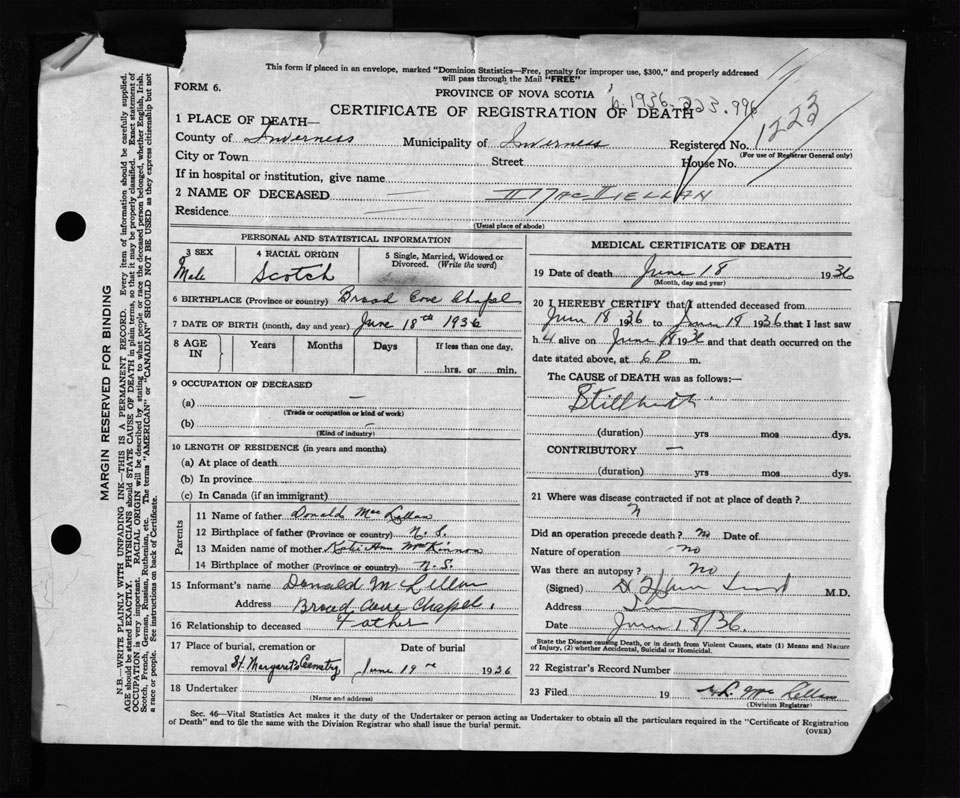 This form if placed in an envelope, marked "Dominion Statistics—Free, penalty for improper use, $300," and properly addressed
will pass through the Mail "FREE"
FORM 6.
PROVINCE OF NOVA SCOTIA
CERTIFICATE OF REGISTRATION OF DEATH
1936
1223
1 PLACE OF DEATH—
County of Inverness Municipality of Inverness Registered No.
(For use of Registrar General only)
City or Town Street House No.
If in hospital or institution, give name
2 NAME OF DECEASED
Residence
(Usual place of abode)
PERSONAL AND STATISTICAL INFORMATION
3 SEX 4 RACIAL ORIGIN 5 Single, Married, Widowed or
Divorced. (Write the word)
Male Scotch
6 BIRTHPLACE (Province or country) Broad Cove Chapel
7 DATE OF BIRTH (month, day and year) June 18th 1936
8 AGE IN Years Months Days If less than one day,
hrs. or min.
9 OCCUPATION OF DECEASED
(a) —
(Trade or occupation or kind of work)
(b) —
(Kind of industry)
10 LENGTH OF RESIDENCE (in years and months)
(a) At place of death
(b) In province
(c) In Canada (if an immigrant)
Parents
11 Name of father Donald Mac Lellan
12 Birthplace of father (Province or country) N. S.
13 Maiden name of mother Katie Ann McKinnon
14 Birthplace of mother (Province or country) N. S.
15 Informant's name Donald McLellan
Address Broad Cove Chapel.
16 Relationship to deceased Father
17 Place of burial, cremation or Date of burial
removal St. Margaret's Cemetry June 19 1936
18 Undertaker
(Name and address)
MEDICAL CERTIFICATE OF DEATH
19 Date of death June 18 1936
(Month, day and year)
20 I HEREBY CERTIFY that I attended deceased from
June 18 1936 to June 18 1936 that I last saw
h alive on June 18 1936 and that death occurred on the
date stated above, at 6 P m.
The CAUSE of DEATH was as follows:—
Stillbirth
(duration) yrs mos dys.
CONTRIBUTORY —
(duration) yrs mos dys.
21 Where was disease contracted if not at place of death?
Did an operation precede death? No Date of
Nature of operation no
Was there an autopsy? No
(Signed) M.D.
Address
Date June 18/36.
State the Disease causing Death, or in death from Violent Causes, state (1) Means and Nature
of Injury, (2) whether Accidental, Suicidal or Homicidal.
22 Registrar's Record Number
23 Filed 19 Mac Lellan
(Division Registrar)
Sec. 46—Vital Statistics Act makes it the duty of the Undertaker or person acting as Undertaker to obtain all the particulars required in the "Certificate of Registration
of Death" and to file the same with the Division Registrar who shall issue the burial permit.
(OVER)
MARGIN RESERVED FOR BINDING
N.B.—WRITE PLAINLY WITH UNFADING INK—THIS IS A PERMANENT RECORD. Every item of information should be carefully supplied.
AGE should be stated EXACTLY. PHYSICIANS should STATE CAUSE OF DEATH in plain terms, so that it may be properly classified. Exact statement of
OCCUPATION is very important. RACIAL ORIGIN will be described by stating to what people or race the deceased person belonged, whether English, Irish,
Scotch, French, German, Russian, Ruthenian, etc. The terms "AMERICAN" or "CANADIAN" SHOULD NOT BE USED as they express citizenship but not
a race or people. See instructions on back of Certificate.